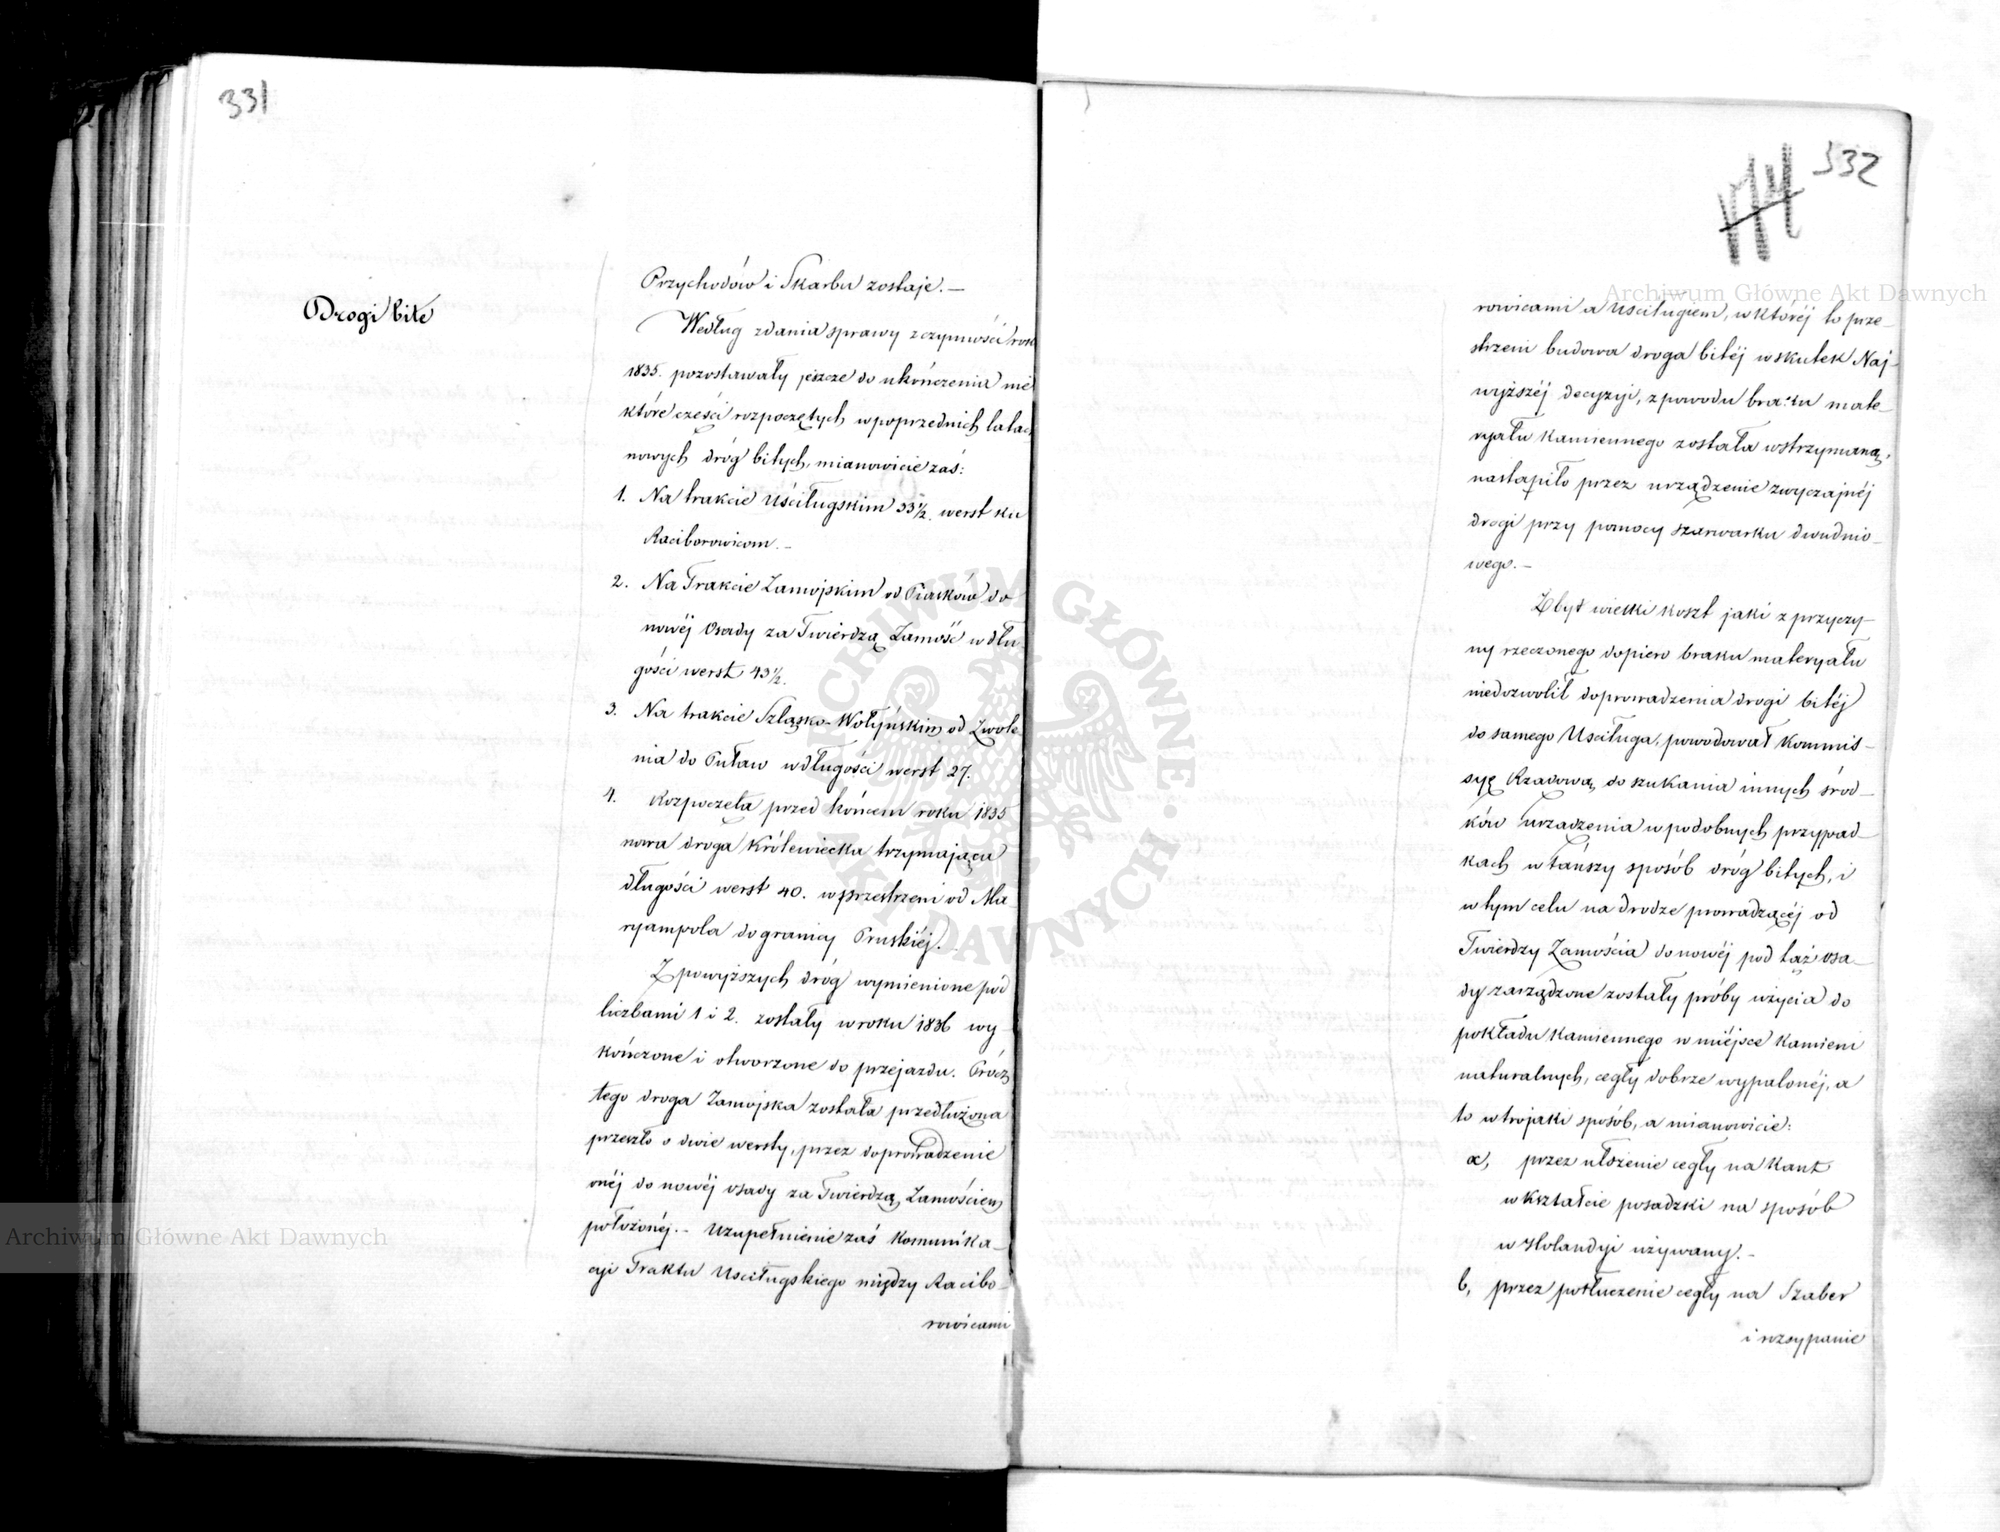 331
Drogi bite
Przychodów i Skarbu zostaje. —
Według zdania sprawy z czynności rok
1835. pozostawały jeszcze do ukończenia nie
które części rozpoczętych w poprzednich latach
nowych dróg bitych, mianowicie zaś:
1. Na trakcie Uściługskim 33½. werst ku
Raciborowicom. —
2. Na Trakcie Zamojskim od Piasków do
nowéj Osady za Twierdzą Zamość w dłu
gości werst 43½.
3. Na trakcie Szląsko-Wołyńskim od Zwole
nia do Puław w długości werst 27.
4. Rozpoczęta przed końcem roku 1835
nowa droga Królewiecka trzymająca
długości werst 40. w przestrzeni od Ma-
ryampola do granicy Pruskiéj. —
Z powyższych dróg wymienione pod
liczbami 1 i 2. zostały w roku 1836 wy-
kończone i otworzone do przejazdu. Prócz
tego droga Zamojska została przedłużona
przeszło o dwie wersty, przez doprowadzenie
onéj do nowéj osady za Twierdzą Zamościem
położonéj. — Uzupełnienie zaś Komunika-
cyi Traktu Usciługskiego między Racibo-
rowicami
332
174
rowicami a Usciługiem, w któréj to prze-
strzeni budowa droga bitéj w skutek Naj-
wyższéj decyzyi, z powodu braku mate-
ryału Kamiennego została wstrzymaną,
nastąpiło przez urządzenie zwyczajnéj
drogi przy pomocy szarwarku dwudnio-
wego. —
Zbyt wielki koszt jaki z przyczy-
ny rzeczonego dopiero braku materyału
niedozwolił doprowadzenia drogi bitéj
do samego Usciługa, powodował Kommis-
syę Rządową do szukania innych środ-
ków urządzenia w podobnych przypad-
kach w tańszy sposób dróg bitych, i
w tym celu na drodze prowadzącéj od
Twierdzy Zamościa do nowéj pod tąż osa-
dy zarządzone zostały próby użycia do
pokładu Kamiennego w miéjsce Kamieni
naturalnych, cegły dobrze wypalonéj, a
to w trojaki sposób, a mianowicie:
a, przez ułożenie cegły na Kant
w kształcie posadzki na sposób
w Holandyi używany. —
b, przez potłuczenie cegły na Szaber
i rozsypanie
Archiwum Główne Akt Dawnych
Archiwum Główne Akt Dawnych
ARCHIWUM GŁÓWNE AKT DAWNYCH